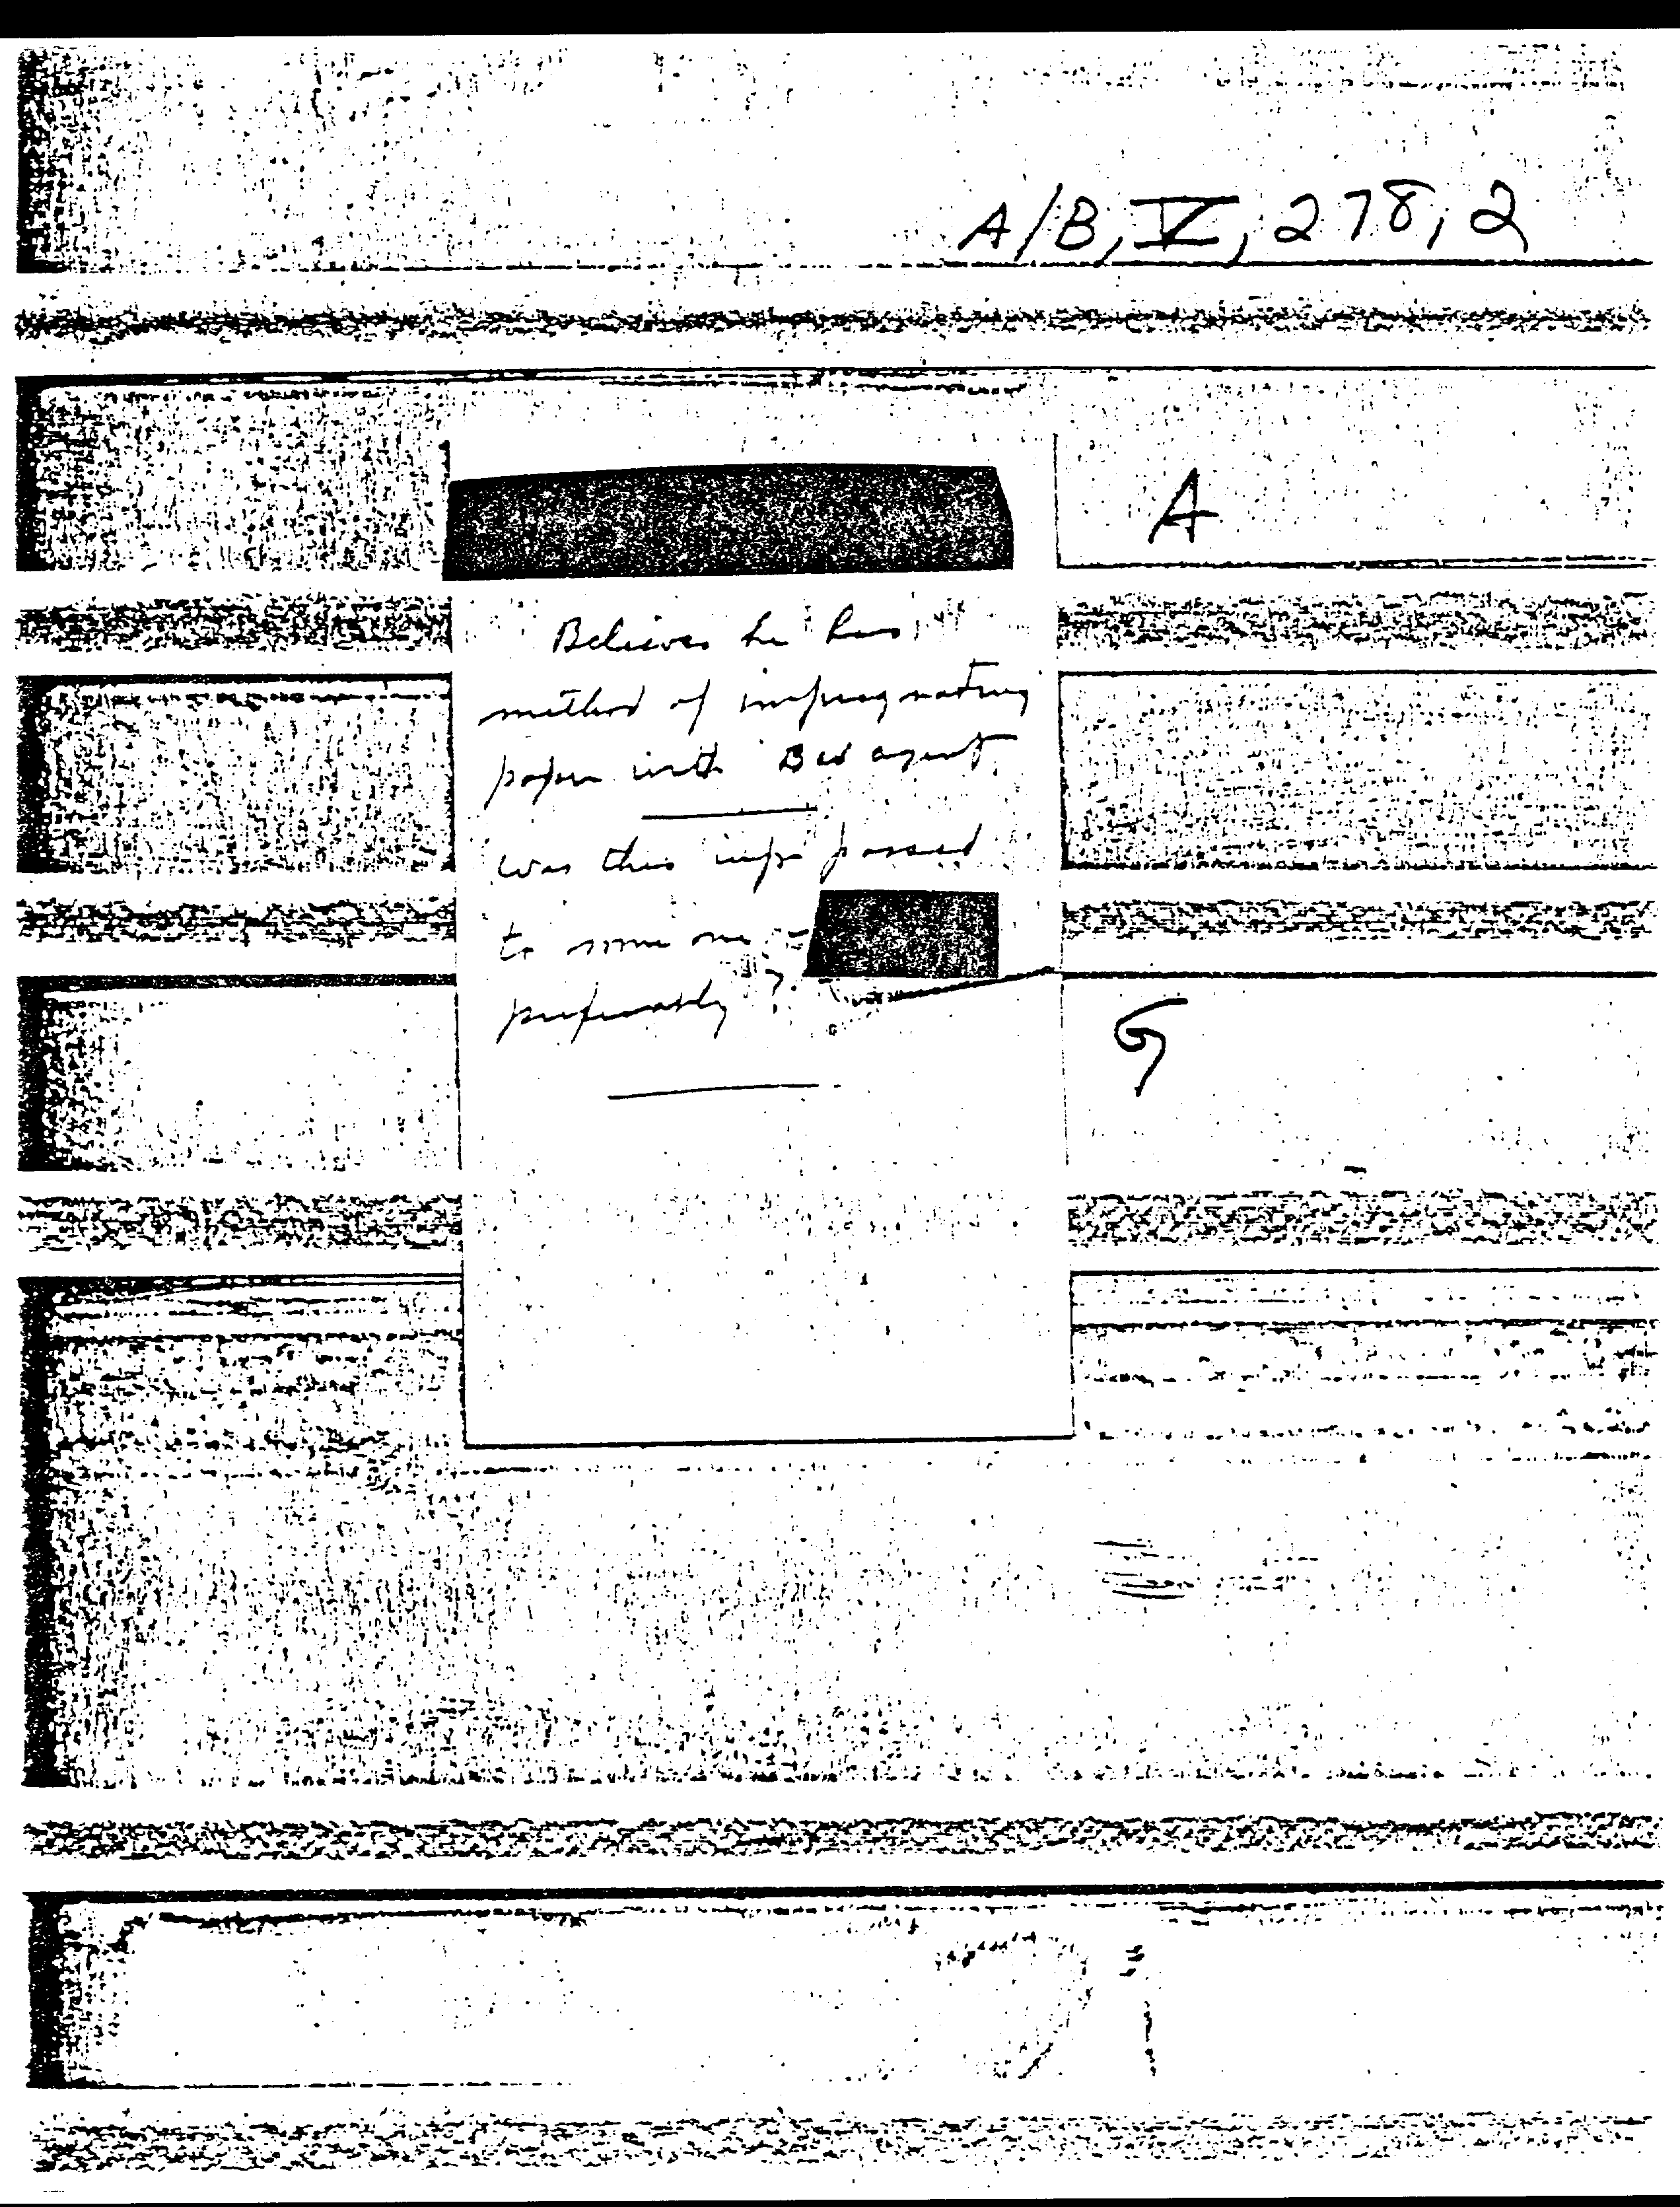 A/B, V, 278, 2
A
Believes he has
method of impregnating
paper with BW agent
was this info passed
to some one
preferably ?
G